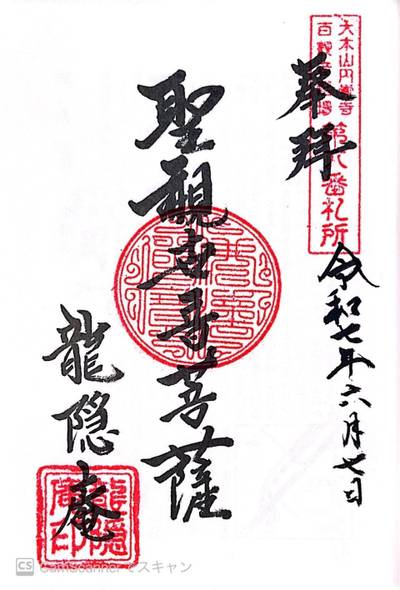 大本山円覚寺
百観音霊場
第八番札所
奉拝
令和七年六月七日
聖觀世音菩薩
龍隠庵
龍隠庵印
CS CamScanner でスキャン